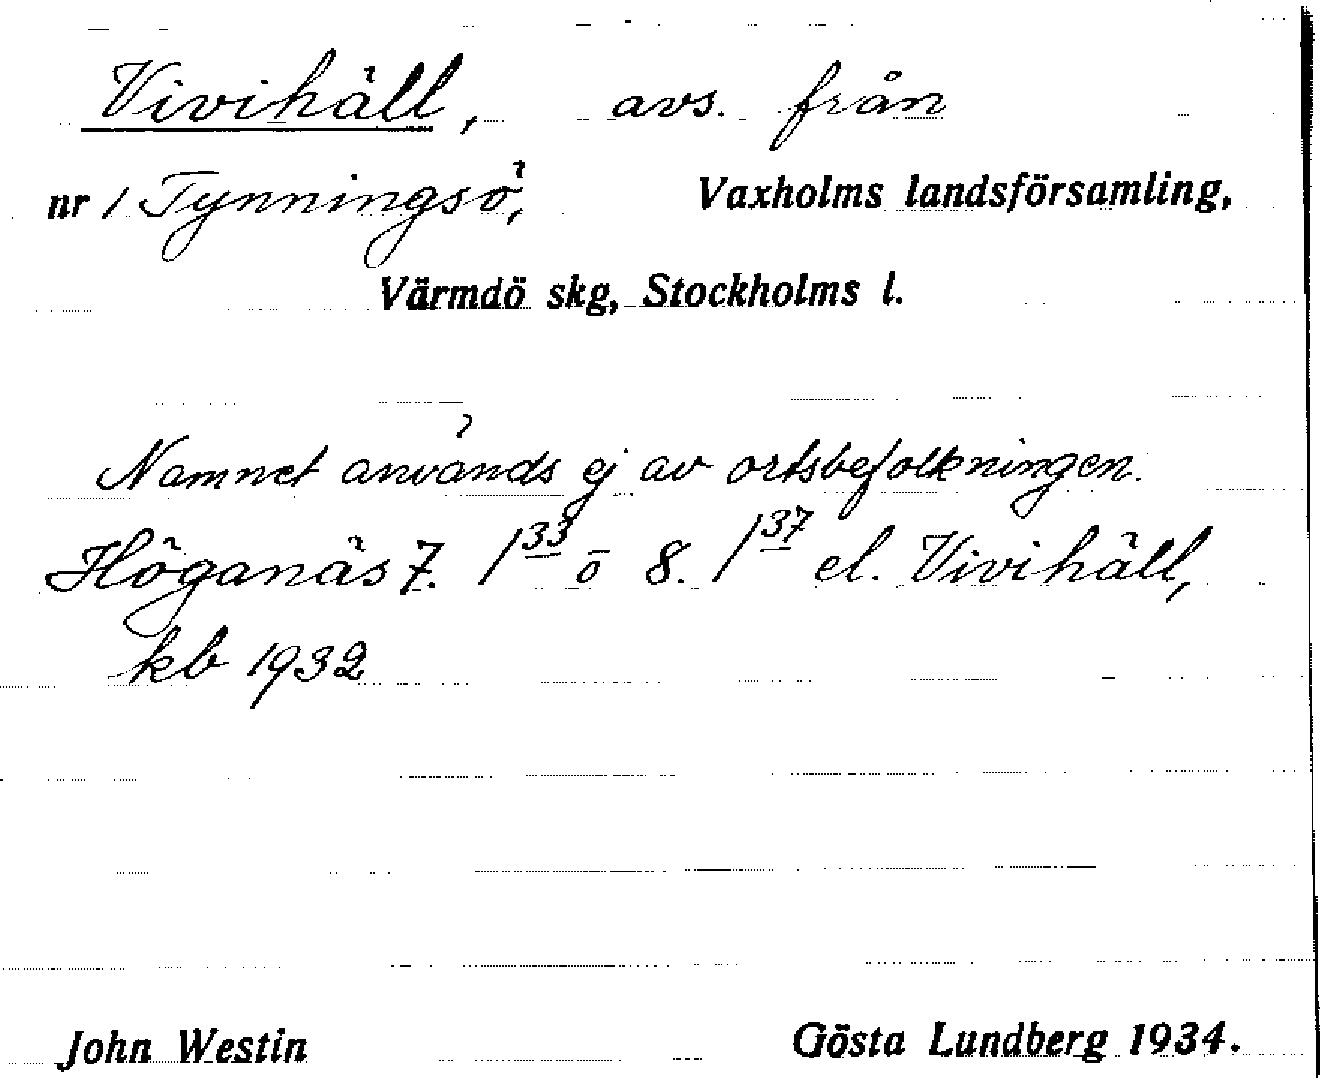 Vivihäll, avs. från
nr 1 Tynningsö, Vaxholms landsförsamling,
Värmdö skg, Stockholms l.
Namnet används ej av ortsbefolkningen.
Höganäs 7. 1 33 o 8. 1 37 el. Vivihäll,
kb 1932
John Westin Gösta Lundberg 1934.